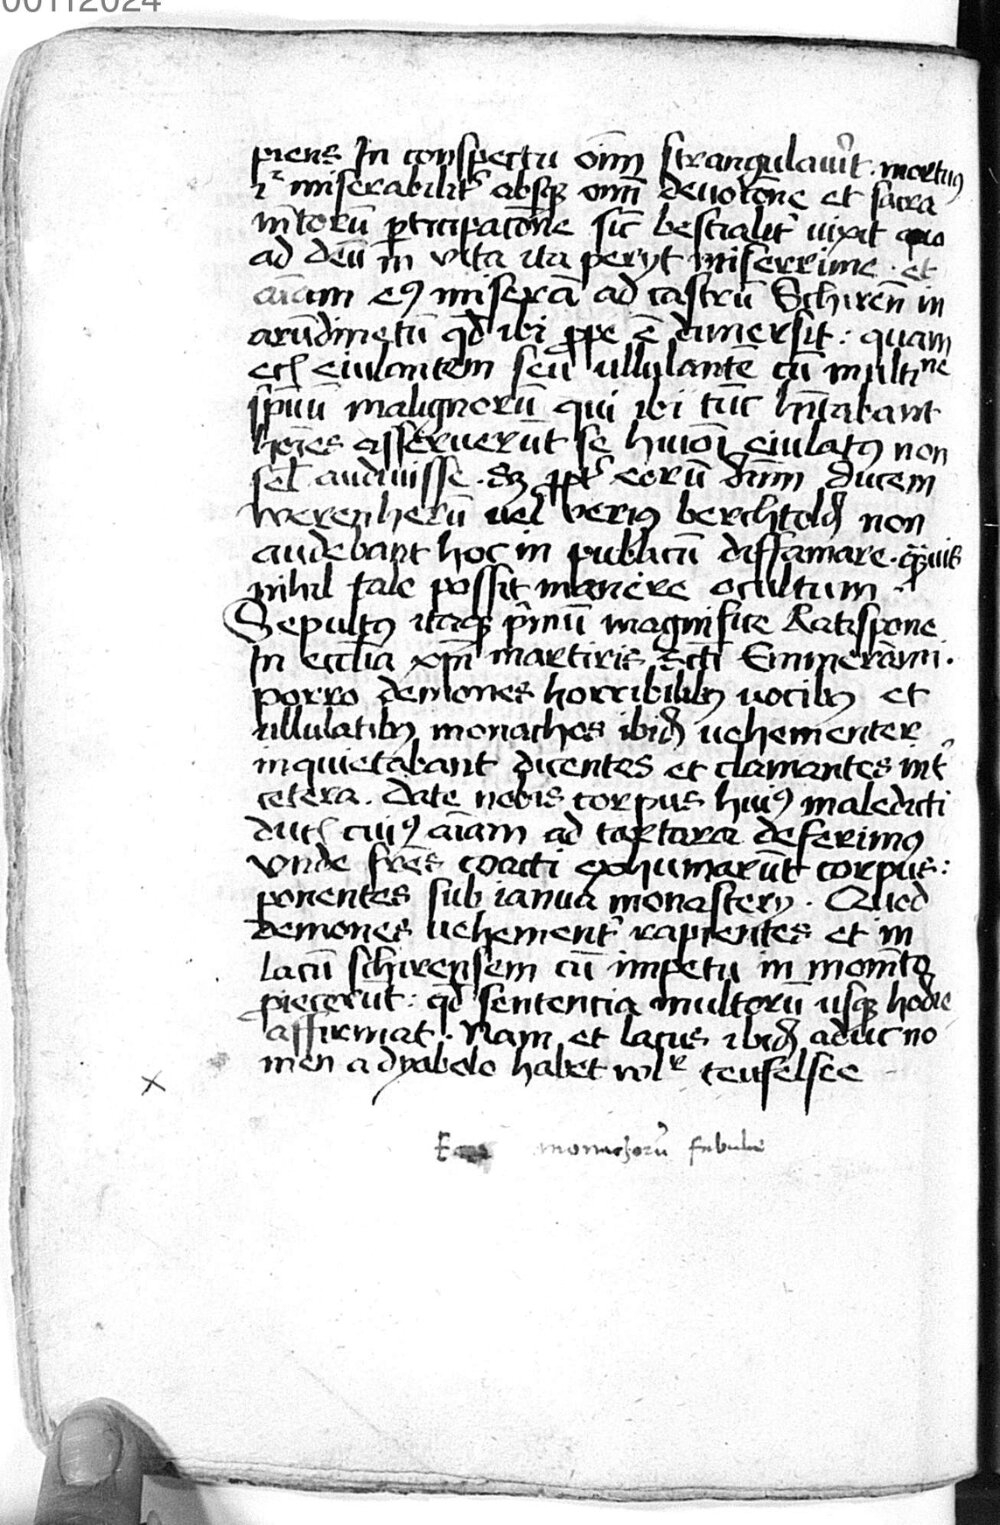 00112024
piens In conspectu oīm strangulauͥt. mortuꝯ
r̄ miserabilit̾ absqꝫ omī deuotōne et sacra
mētorū ꝑticipatōne sic̄ bestialit̾ uixit quo
ad deū in vita ita peryt miserrime. et
aīam eꝯ miserā ad castrū Schiren̄ in
arūdinetū qd̄ ibi ꝓpe ē dimersit: quam
eciā eiulantem seu ullulantē cū multine
spūū malignorū qui ibi tūc hītabant
hoīes asseruerūt se huiōi eiulatꝯ non
sel̄ audiuisse. Sꝫ ꝓpt̾ eorū dn̄m ducem
Werenherū uel verius berchtold̄ non
audebant hoc in publicū diffamare. qͣuis
nihil tale possit manere ocultum.
Sepultꝯ itaqꝫ p̾mū magnifice Ratispone
In eccl̄ia xp̄i martiris scti Emmerammi.
porro demones horribilibꝯ uocibꝯ et
ullulatibꝯ monachos ibid̄ uehementer
inquietabant dicentes et clamantes int̾
cetera. Date nobis corpus huiꝯ maledicti
ducis cuiꝯ aīam ad tartara deferimꝯ
Vnde frēs coacti exhumarūt corpus:
ponentes sub ianua monastery. Quod
demones uehement̾ rapientes et in
lacū schirensem cū impetu in momēto
proiecerūt: qd̄ sentencia multorū usqꝫ hodie
affirmat. Nam et lacus ibid̄ aduc no
men a dyabolo habet wlr̄ teufelsee
x
monachorū fabule